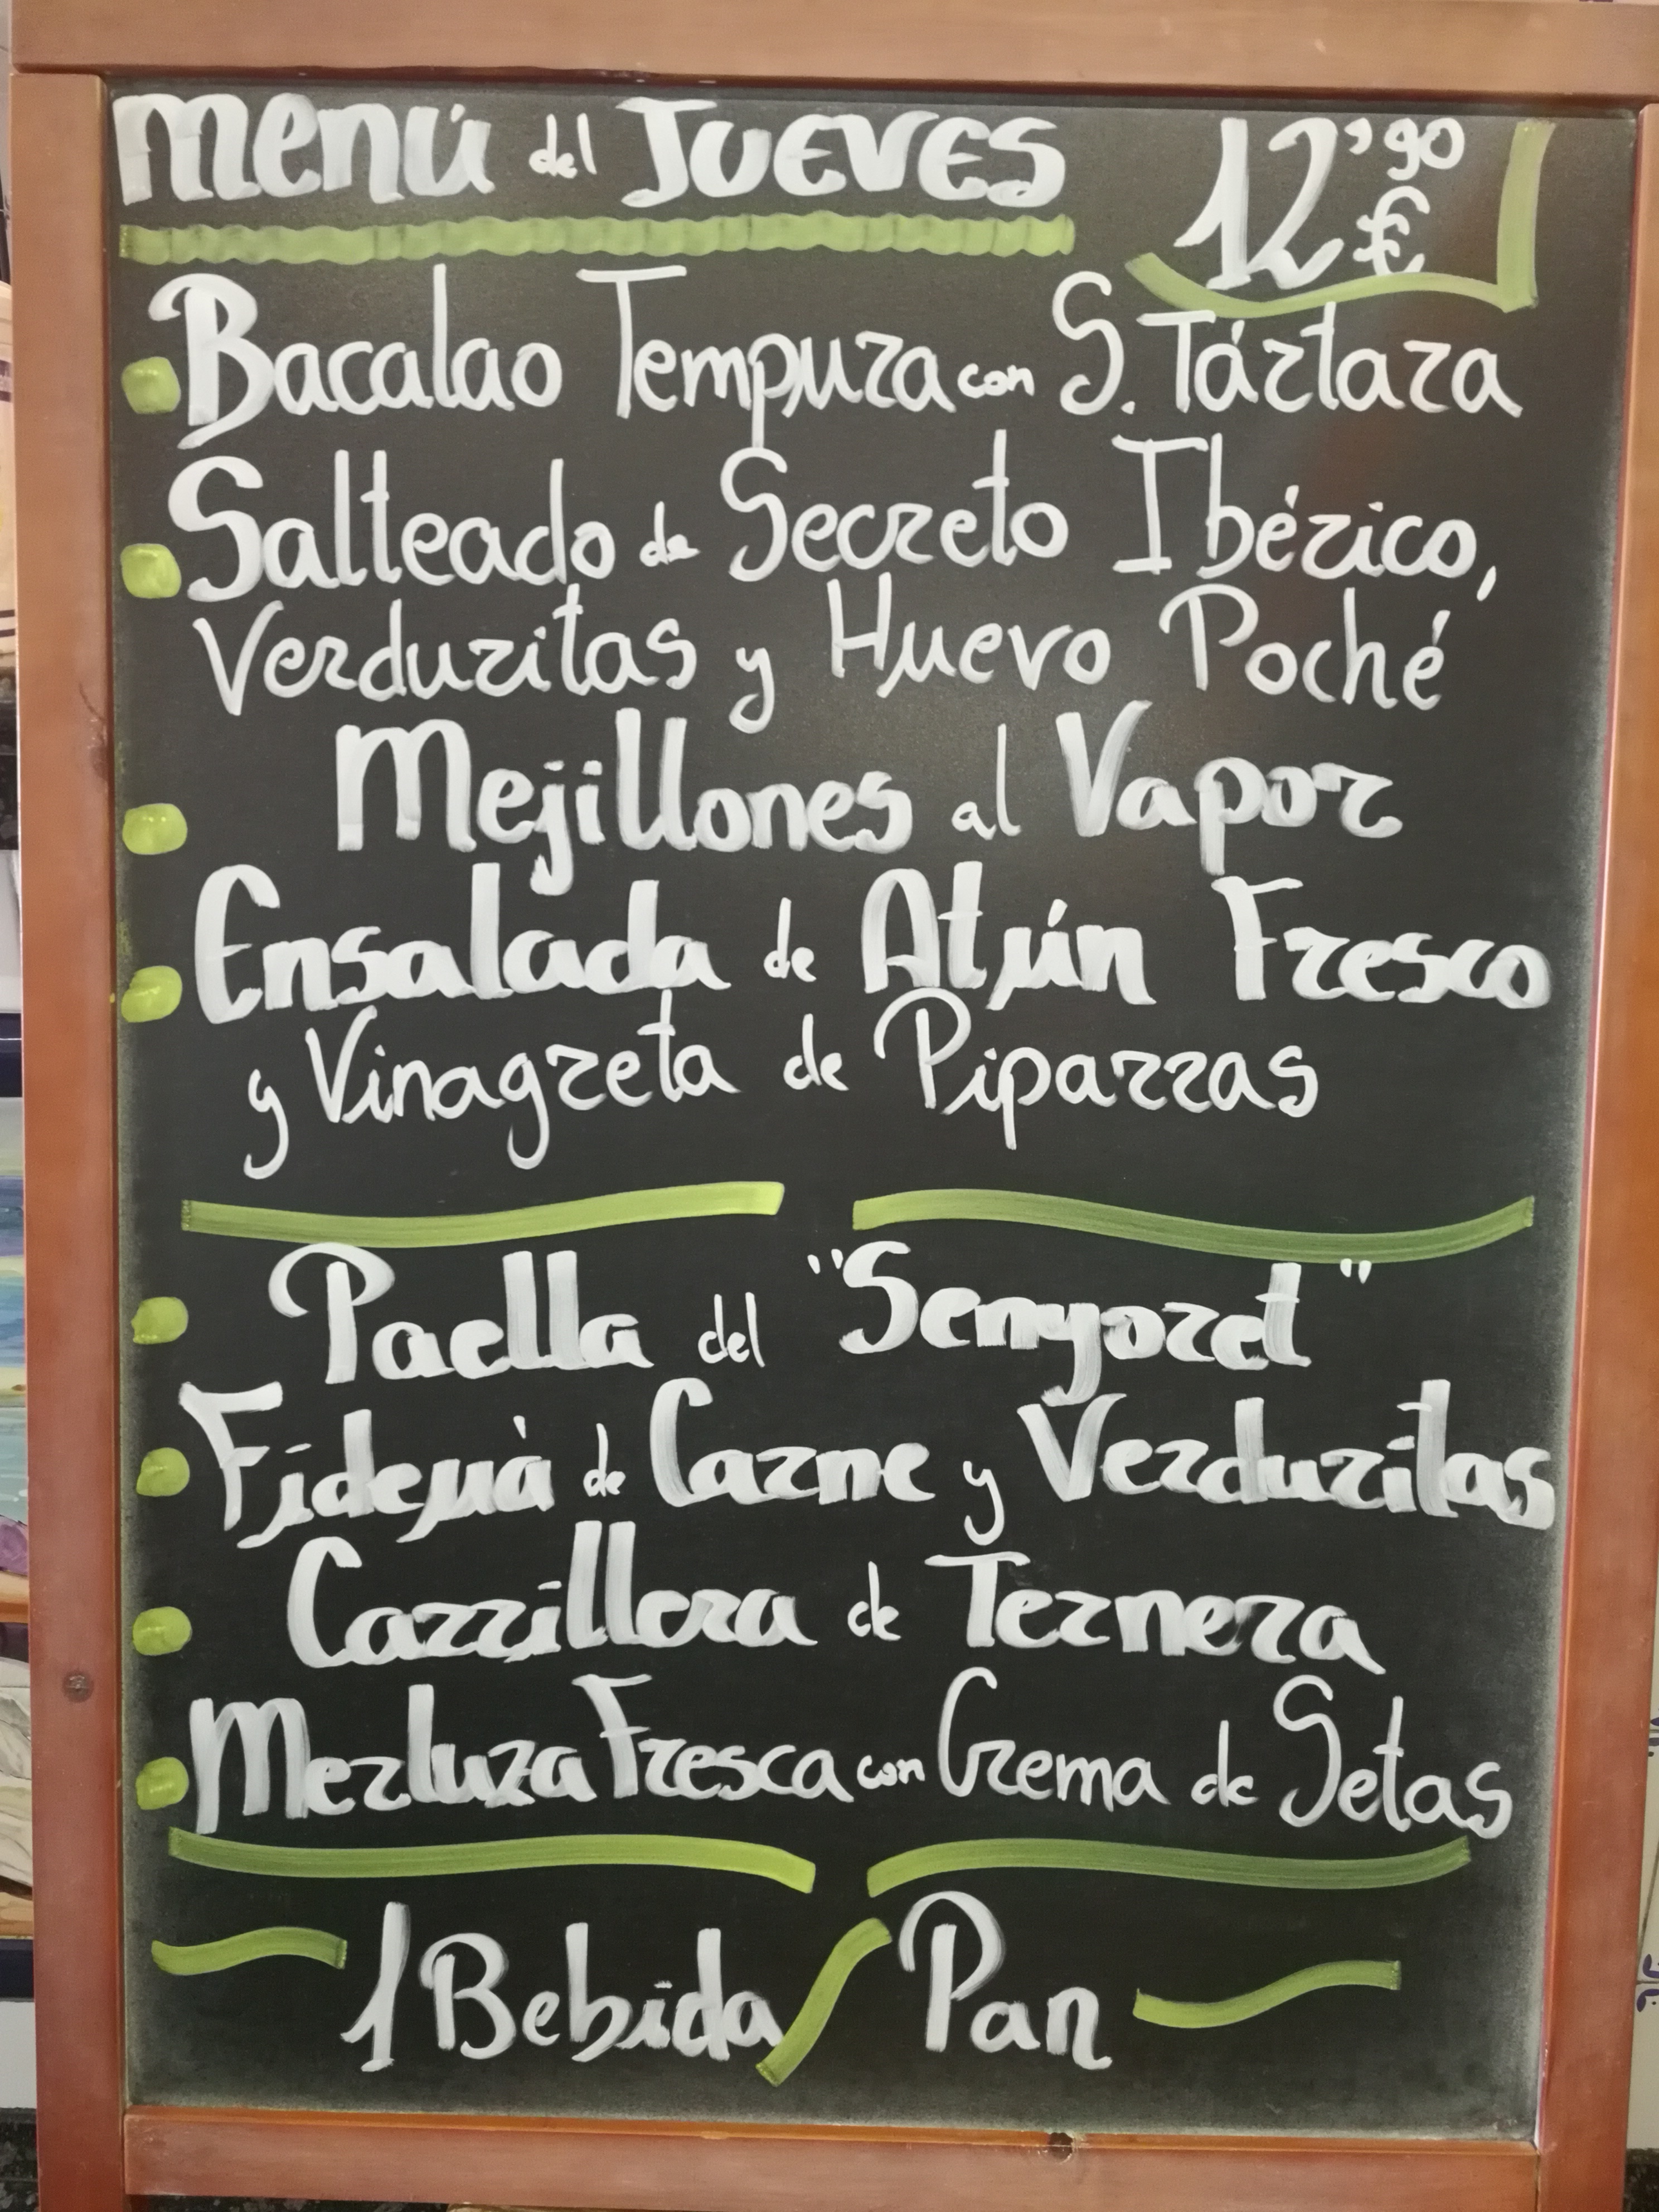 Menú del JUEVES
12'90
€
Bacalao Tempura con S. Tártara
Salteado de Secreto Ibérico,
Verduritas y Huevo Poché
Mejillones al Vapor
Ensalada de Atún Fresco
y Vinagreta de Piparras
Paella del "Senyoret"
Fideuà de Carne y Verduritas
Carrillera de Ternera
Merluza Fresca con Crema de Setas
1 Bebida / Pan